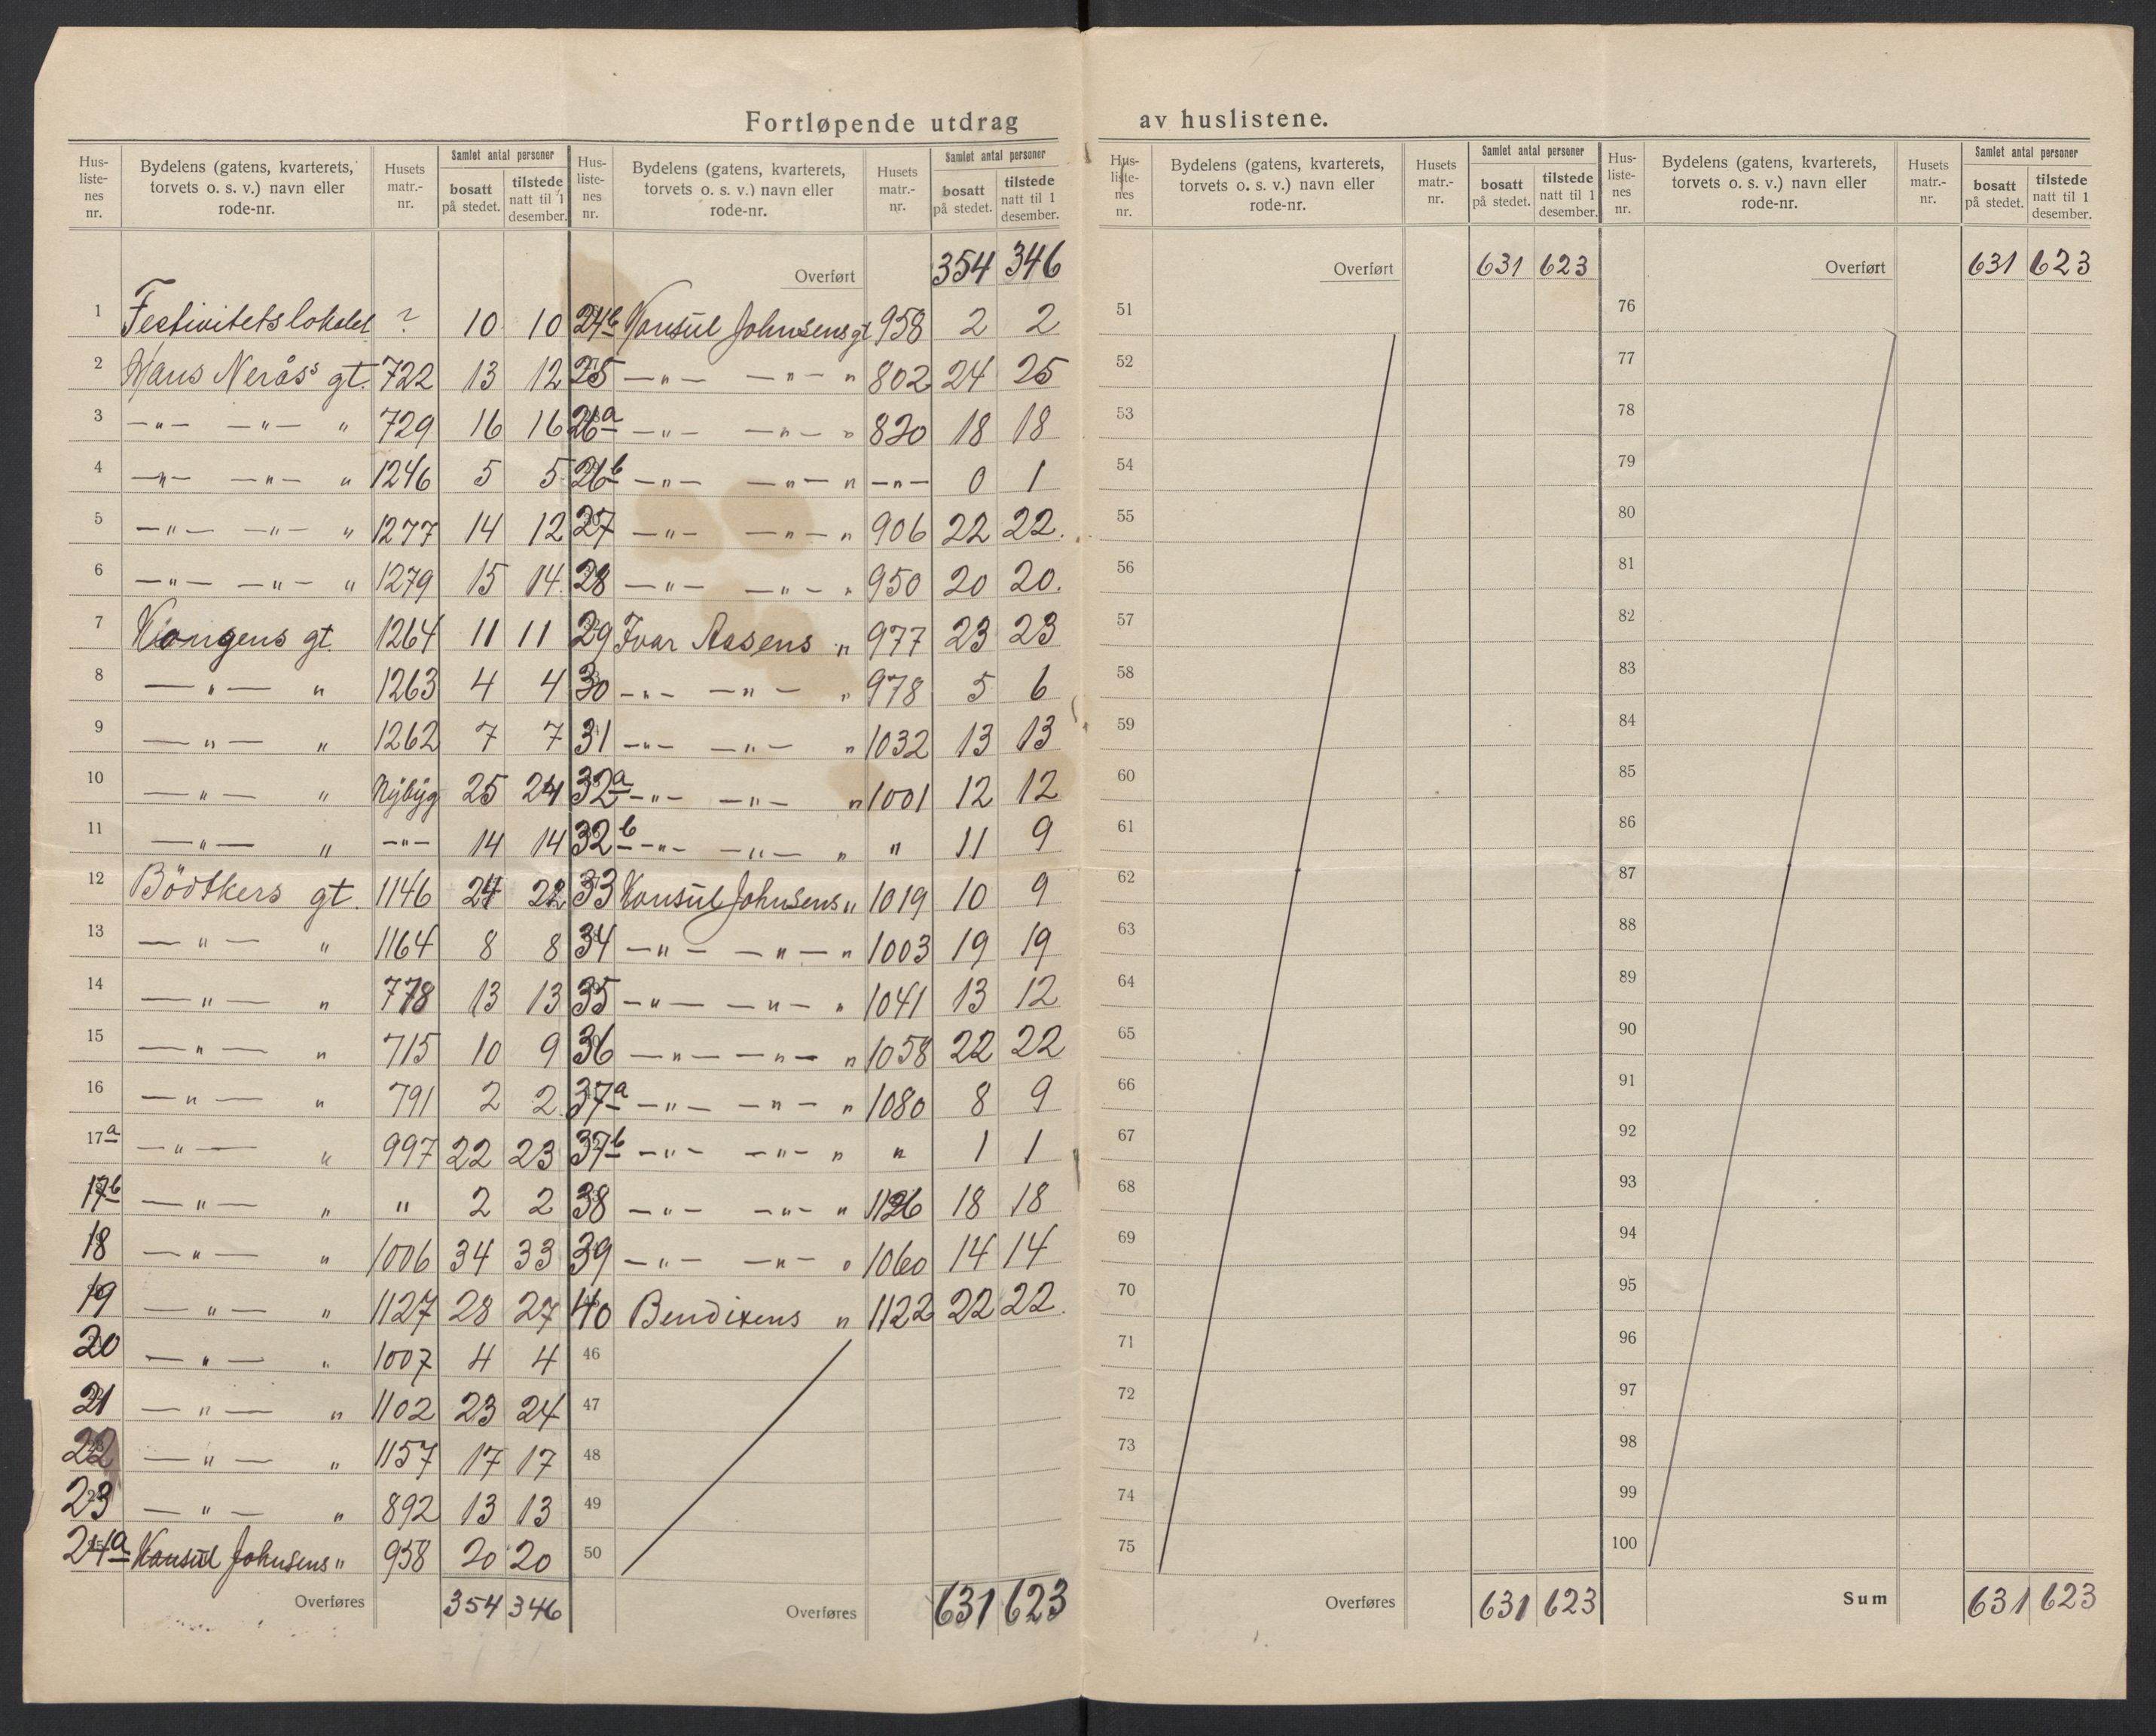 Fortløpende utdrag av huslistene.
Hus-liste-nes nr. | Bydelens (gatens, kvarterets, torvets o. s. v.) navn eller rode-nr. | Husets matr.-nr. | Samlet antal personer | bosatt på stedet. | tilstede natt til 1 desember.
1 Festivitetslokalet ? 10 10
2 Hans Nerås's gt. 722 13 12
3 —"— —"— " 729 16 16
4 —"— —"— " 1246 5 5
5 —"— —"— " 1277 14 12
6 —"— —"— " 1279 15 14
7 Kongens gt. 1264 11 11
8 —"— " 1263 4 4
9 —"— " 1262 7 7
10 —"— " Nybyg 25 24
11 —"— " —"— 14 14
12 Bödtkers gt. 1146 24 22
13 —"— " 1164 8 8
14 —"— " 778 13 13
15 —"— " 715 10 9
16 —"— " 791 2 2
17a —"— " 997 22 23
17b —"— " " 2 2
18 —"— " 1006 34 33
19 —"— " 1127 28 27
20 —"— " 1007 4 4
21 —"— " 1102 23 24
22 —"— " 1157 17 17
23 —"— " 892 13 13
24a Konsul Johnsens " 958 20 20
Overføres 354 346
Hus-liste-nes nr. | Bydelens (gatens, kvarterets, torvets o. s. v.) navn eller rode-nr. | Husets matr.-nr. | Samlet antal personer | bosatt på stedet. | tilstede natt til 1 desember.
Overført 354 346
24b Konsul Johnsens gt 958 2 2
25 —"— —"— " 802 24 25
26a —"— —"— " 830 18 18
26b —"— —"— " —"— 0 1
27 —"— —"— " 906 22 22.
28 —"— —"— " 950 20 20.
29 Ivar Aasens " 977 23 23
30 —"— —"— " 978 5 6
31 —"— —"— " 1032 13 13
32a —"— —"— " 1001 12 12
32b —"— —"— " " 11 9
33 Konsul Johnsens " 1019 10 9
34 —"— —"— " 1003 19 19
35 —"— —"— " 1041 13 12
36 —"— —"— " 1058 22 22
37a —"— —"— " 1080 8 9
37b —"— —"— " " 1 1
38 —"— —"— " 1126 18 18
39 —"— —"— " 1060 14 14
40 Bendixens " 1122 22 22.
46
47
48
49
50
Overføres 631 623
Hus-liste-nes nr. | Bydelens (gatens, kvarterets, torvets o. s. v.) navn eller rode-nr. | Husets matr.-nr. | Samlet antal personer | bosatt på stedet. | tilstede natt til 1 desember.
Overført 631 623
51
52
53
54
55
56
57
58
59
60
61
62
63
64
65
66
67
68
69
70
71
72
73
74
75
Overføres 631 623
Hus-liste-nes nr. | Bydelens (gatens, kvarterets, torvets o. s. v.) navn eller rode-nr. | Husets matr.-nr. | Samlet antal personer | bosatt på stedet. | tilstede natt til 1 desember.
Overført 631 623
76
77
78
79
80
81
82
83
84
85
86
87
88
89
90
91
92
93
94
95
96
97
98
99
100
Sum 631 623